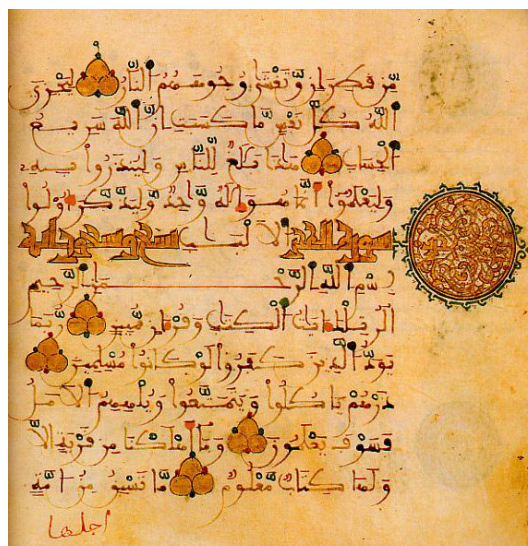 مِّن قَطِرَانٍ وَّتَغْشَىٰ وُجُوهَهُمُ النَّارُ لِيَجْزِيَ
اللَّهُ كُلَّ نَفْسٍ مَّا كَسَبَتْ إِنَّ اللَّهَ سَرِيعُ
الْحِسَابِ هَٰذَا بَلَٰغٌ لِّلنَّاسِ وَلِيُنذَرُوا بِهِ
وَلِيَعْلَمُوا أَنَّمَا هُوَ إِلَٰهٌ وَّاحِدٌ وَّلِيَذَّكَّرَ أُولُوا
سورة الحجر الْأَلْبَٰبِ تسع وتسعون اية
بِسْمِ اللَّهِ الرَّحْمَٰنِ الرَّحِيمِ
الٓر تِلْكَ ءَايَٰتُ الْكِتَٰبِ وَقُرْءَانٍ مُّبِينٍ رُّبَمَا
يَوَدُّ الَّذِينَ كَفَرُوا لَوْ كَانُوا مُسْلِمِينَ
ذَرْهُمْ يَأْكُلُوا وَيَتَمَتَّعُوا وَيُلْهِهِمُ الْأَمَلُ
فَسَوْفَ يَعْلَمُونَ وَمَا أَهْلَكْنَا مِن قَرْيَةٍ إِلَّا
وَلَهَا كِتَابٌ مَّعْلُومٌ مَّا تَسْبِقُ مِنْ أُمَّةٍ
اجلها